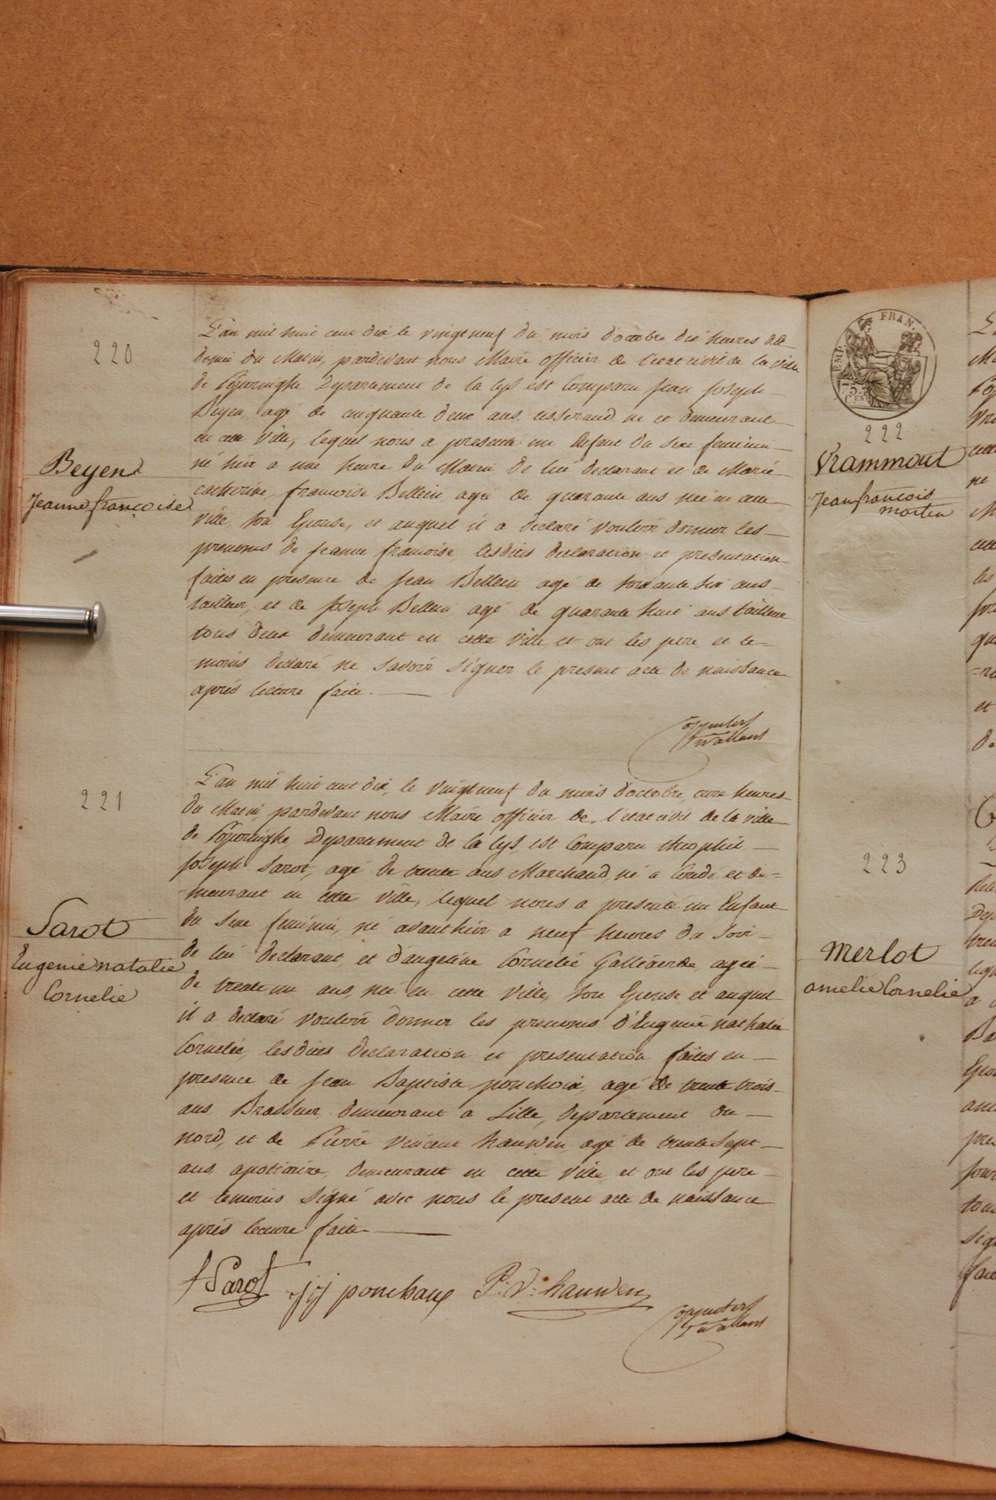 220
L'an mil huit cent dix le vingtneuf du mois d'octobre dix heures et
demie du Matin, pardevant nous Maire officier de l'etat civil de la ville
de Poperinghe Departement de la Lys est Comparu Jean Joseph
Beyen, agé de cinquante deux ans tisserand né et demeurant
en cette Ville, lequel nous a presenté un Enfant du sexe feminin
né hier a une heure du Matin de lui declarant et de Marie
catherine françoise Bellein agée de quarante ans née en cette
ville, son Epouse, et auquel il a declaré vouloir donner les
prenoms de jeanne françoise lesdites declaration et presentation
faites en presence de Jean Bellein agé de soixante six ans
tailleur, et de Joseph Bellein agé de quarante huit ans tailleur
tous deux demeurant en cette ville et ont les pere et te-
moins declaré ne savoir signer le present acte de naissance
après lecture faite.
Beyen
Jeanne françoise
221
L'an mil huit cent dix, le vingtneuf du mois d'octobre, onze heures
du Matin, pardevant nous Maire officier de l'etat civil de la ville
de Poperinghe Departement de la Lys est Comparu theophile
Joseph Sarot, agé de trente ans Marchand, né a Condé et de-
-meurant en cette ville, lequel nous a presenté un Enfant
du sexe feminin, né avanthier a neuf heures du soir
de lui declarant, et d'angeline Cornelie agée
de trente un ans, née en cette Ville, son Epouse et auquel
il a declaré vouloir donner les prenoms d'Eugenie nathalie
Cornelie, lesdites declaration et presentation faites en
presence de Jean Baptiste ponchaux, agé de trente trois
ans Brasseur demeurant a Lille, departement du
nord, et de Pierre Vincent hauwen agé de trente sept
ans apoticaire, demeurant en cette Ville et ont les pere
et temoins signé avec nous le present acte de naissance
après lecture faite
Sarot
Eugenie natalie
Cornelie
Sarot
jj ponchaux
P: V: hauwen
EMP. FRAN.
222
Vrammout
Jean françois
martin
223
Merlot
amelie Cornelie